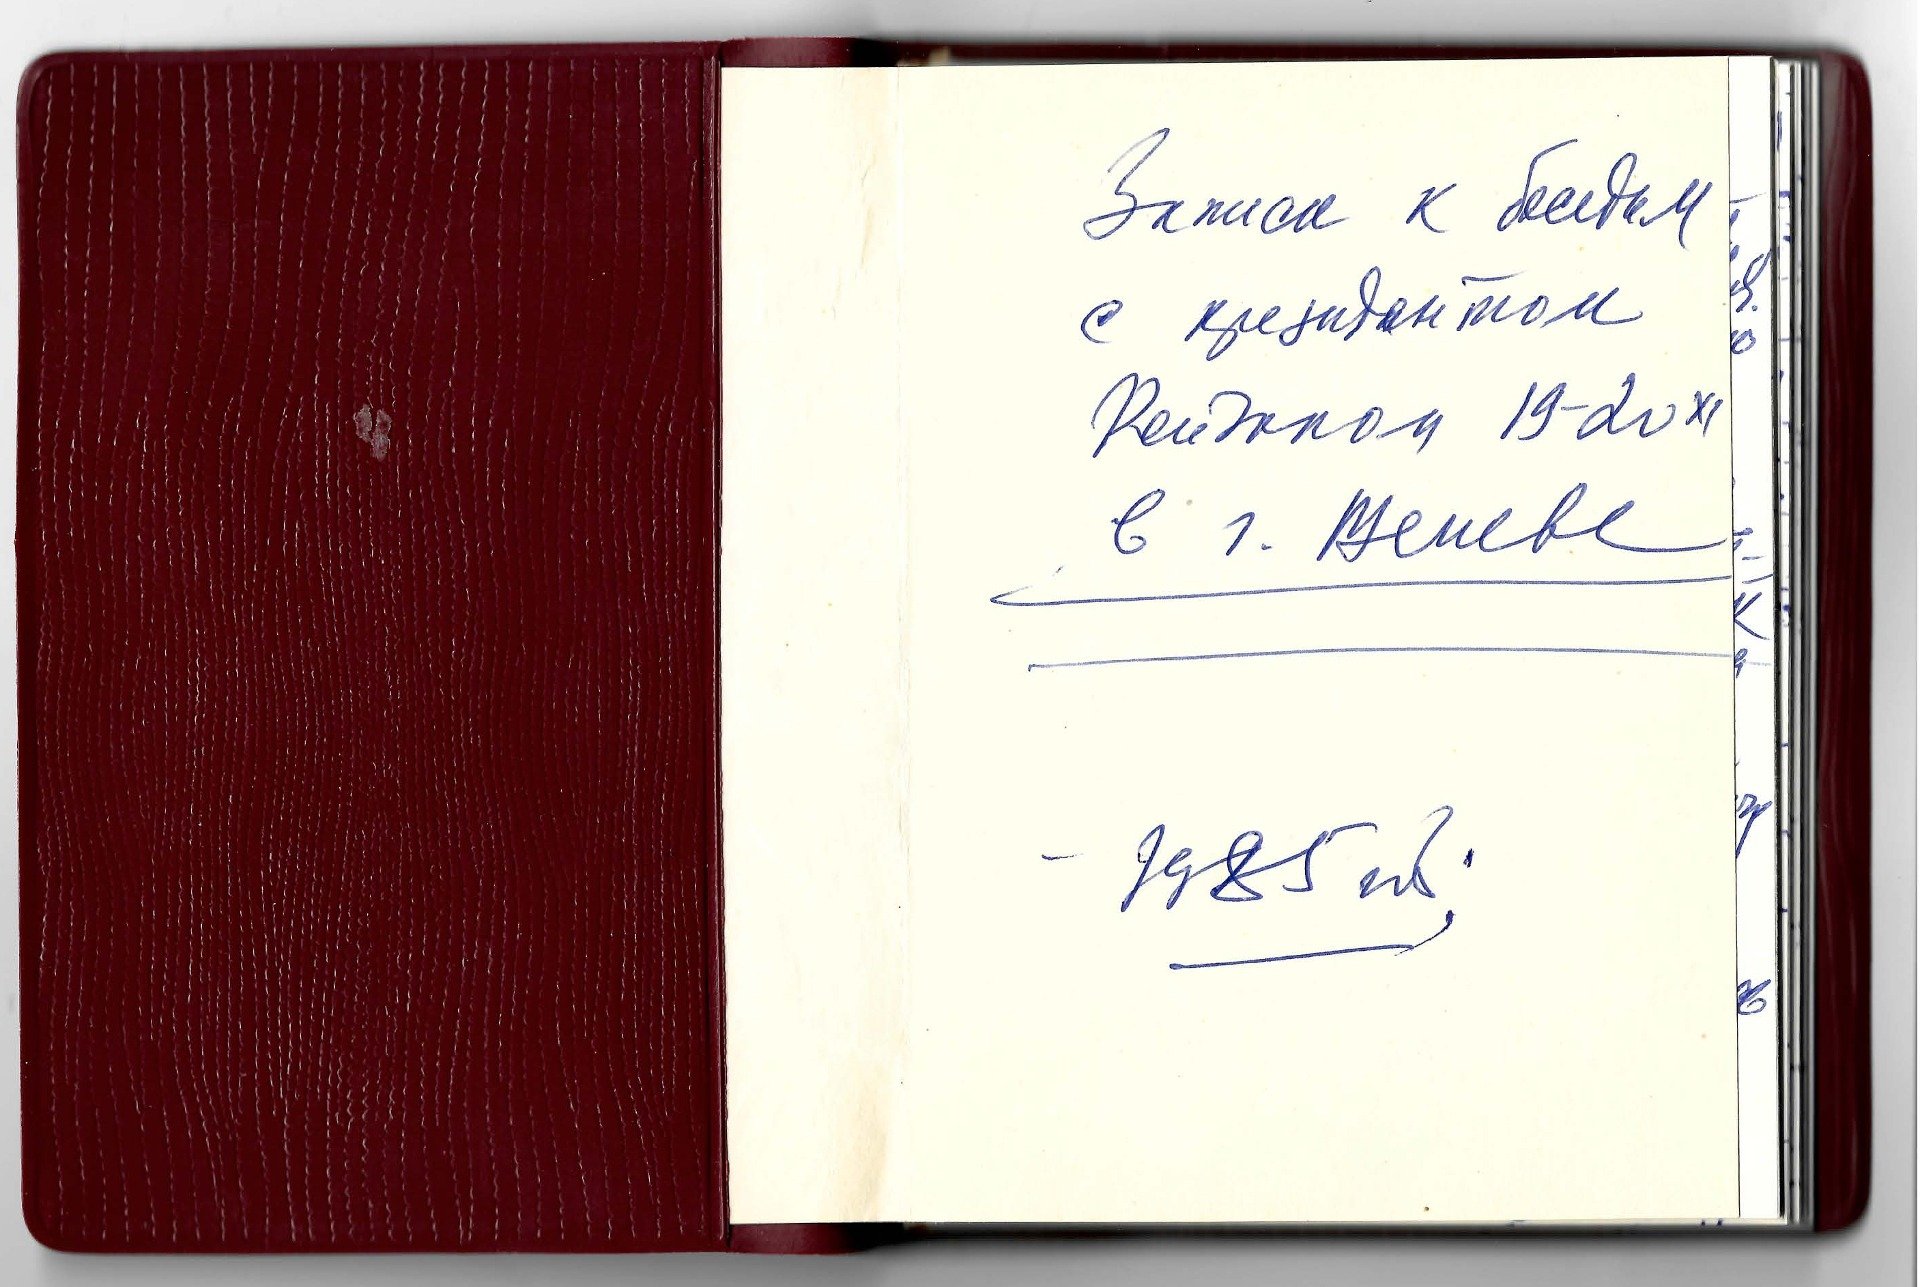 Записи к беседам
с президентом
Рейганом 19-20 XI
в г. Женеве
- 1985 год.